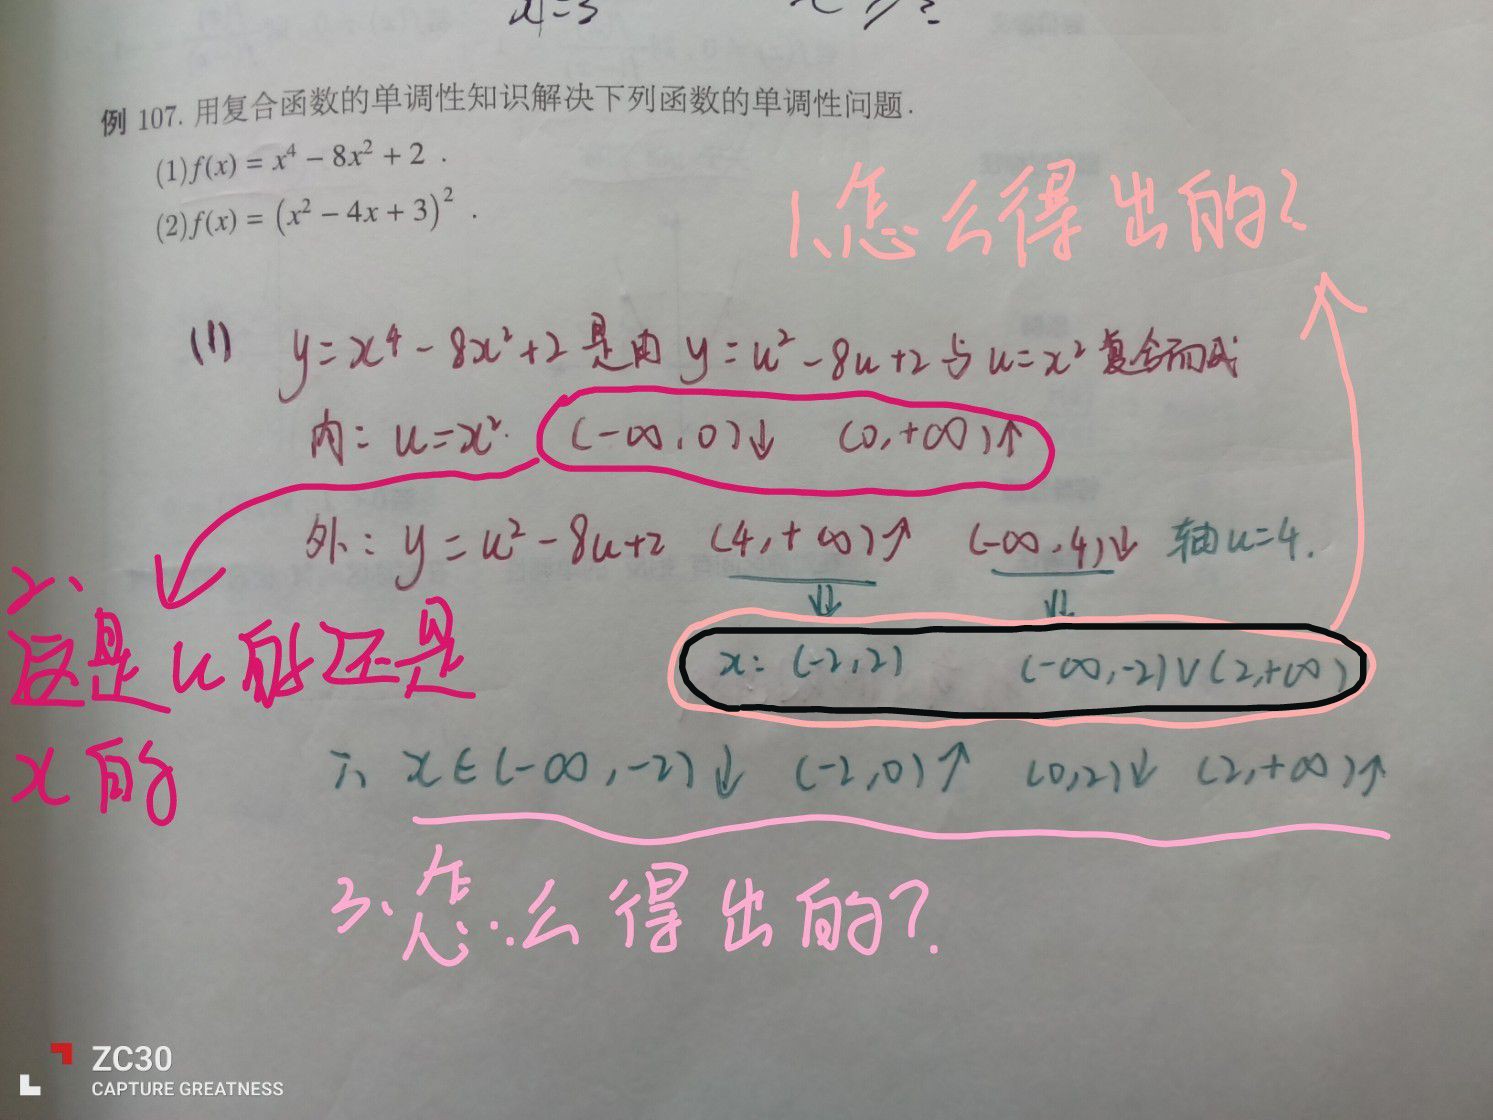 x=3
例 107. 用复合函数的单调性知识解决下列函数的单调性问题.
(1)f(x) = x⁴ − 8x² + 2 .
(2)f(x) = (x² − 4x + 3)² .
1、怎么得出的?
(1) y=x⁴-8x²+2 是由 y=u²-8u+2 与 u=x² 复合而成
内: u=x². (-∞,0)↓ (0,+∞)↑
外: y=u²-8u+2 (4,+∞)↑ (-∞,4)↓ 轴u=4.
⇓ ⇓
x: (-2,2) (-∞,-2)∨(2,+∞)
2、
这是u的还是
x的
∴ x∈(-∞,-2)↓ (-2,0)↑ (0,2)↓ (2,+∞)↑
3、怎么得出的?
ZC30
CAPTURE GREATNESS